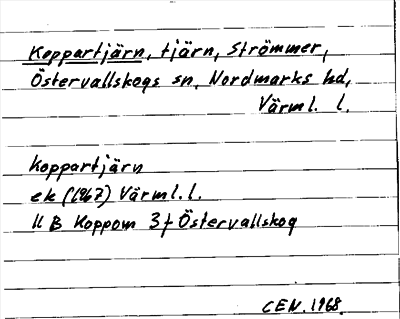 Koppartjärn, tjärn, Strömmer,
Östervallskogs sn, Nordmarks hd,
Värml. l.
Koppartjärn
ek (1967) Värml. l.
11 B Koppom 3f Östervallskog
CEN. 1968.